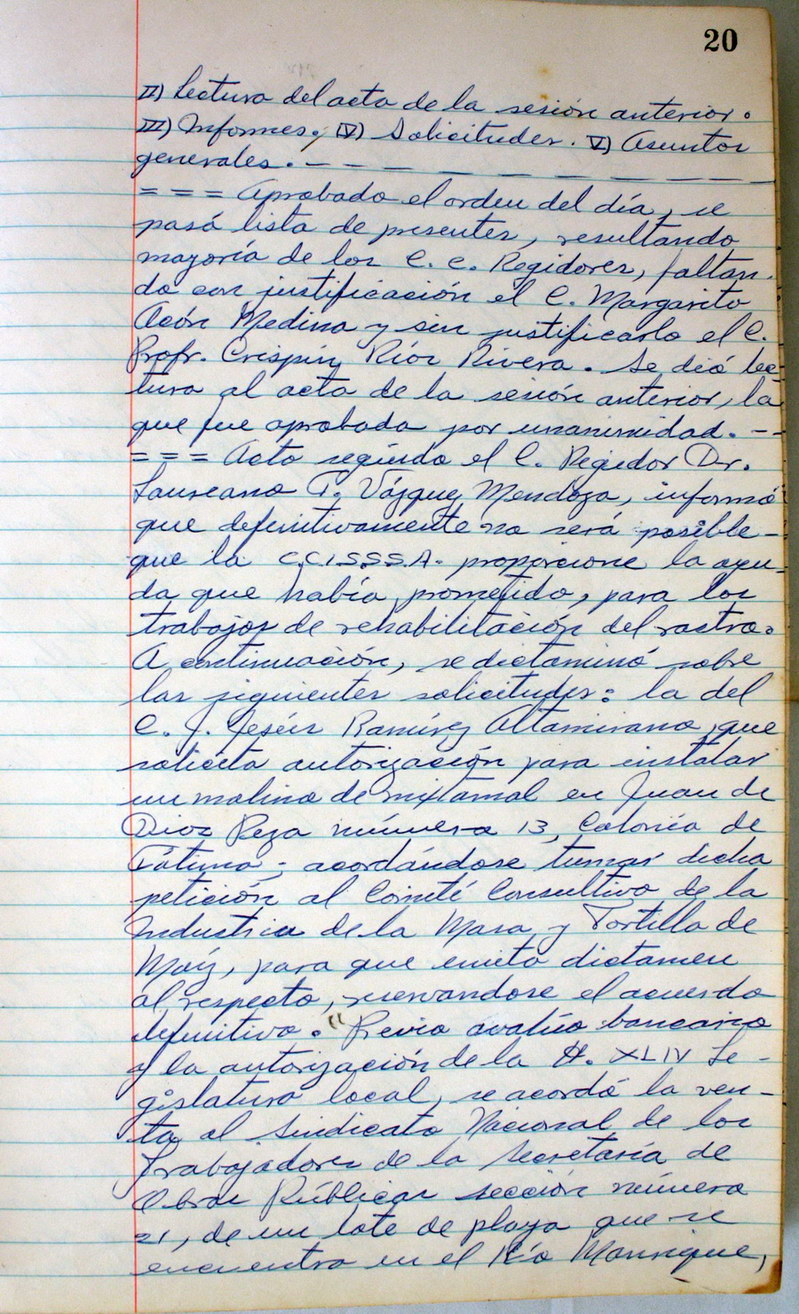 20
II) Lectura del acta de la sesión anterior.
III) Informes. IV) Solicitudes. V) Asuntos
generales. - - - - - - - - -
= = = Aprobado el orden del día, se
pasó lista de presentes, resultando
mayoría de los C. C. Regidores, faltan-
do con justificación el C. Margarito
Acón Medina y sin justificarlo el C.
Profr. Crispín Ríos Rivera. Se dió lec-
tura al acta de la sesión anterior, la
que fue aprobada por unanimidad. - -
= = = Acto seguido el C. Regidor Dr.
Laureano T. Vázquez Mendoza, informó
que definitivamente no será posible -
que la C.C.I.S.S.S.A. proporcione la ayu-
da que había prometido, para los
trabajos de rehabilitación del rastro.
A continuación, se dictaminó sobre
las siguientes solicitudes: la del
C. J. Jesús Ramírez Altamirano, que
solicita autorización para instalar
un molino de nixtamal en Juan de
Dios Peza número 13, Colonia de
Fátima; acordándose turnar dicha
petición al Comité Consultivo de la
Industria de la Masa y Tortilla de
Maíz, para que emita dictamen
al respecto, reservandose el acuerdo
definitivo. " Previo avalúo bancario
y la autorización de la H. XLIV Le-
gislatura local, se acordó la ven-
ta al Sindicato Nacional de los
Trabajadores de la Secretaría de
Obras Públicas sección número
21, de un lote de playa que se
encuentra en el Río Manrique,